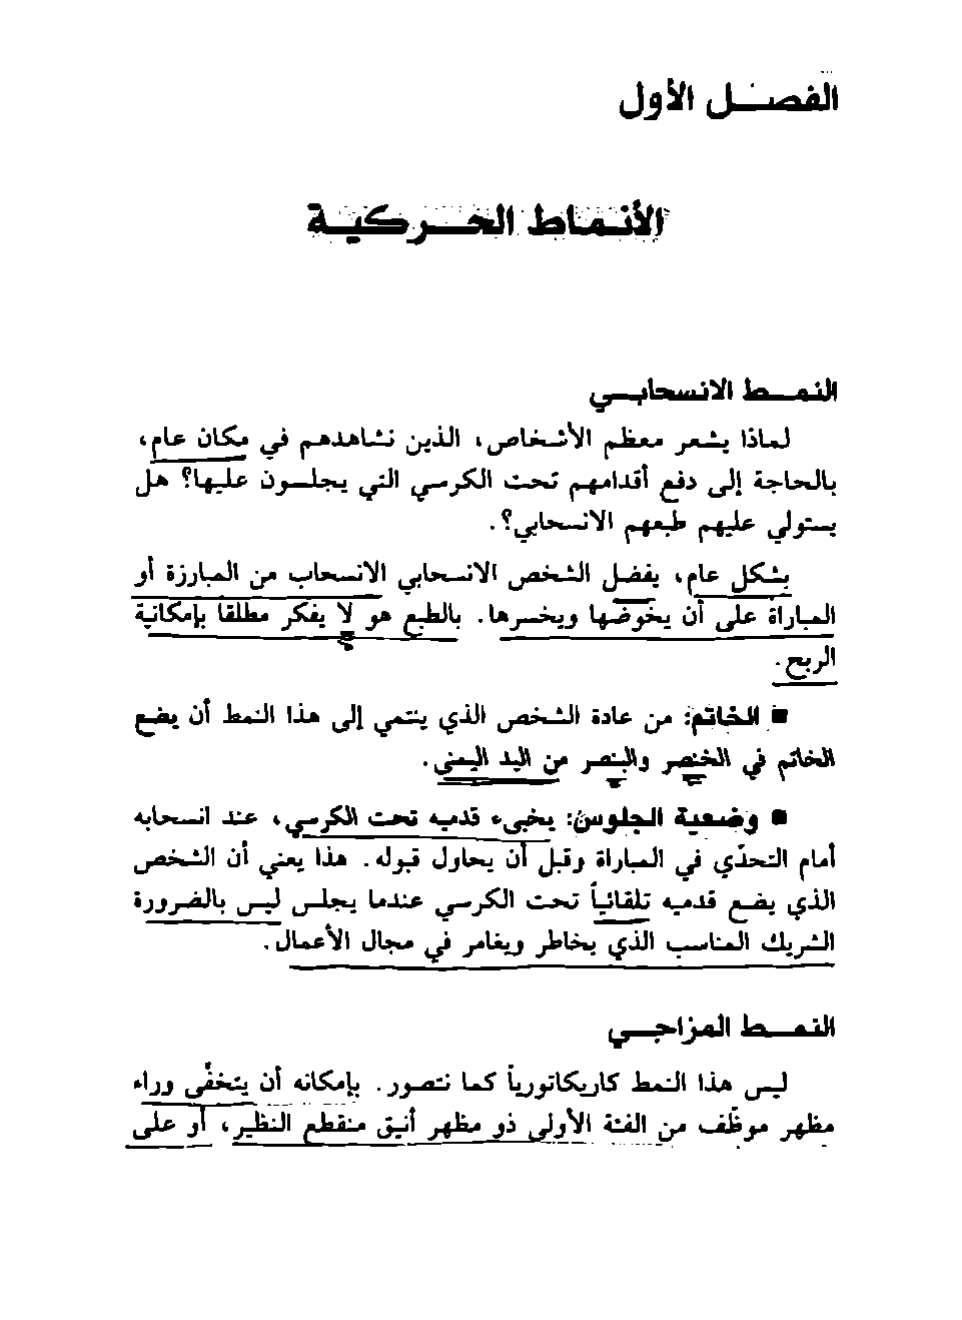 الفصل الأول
الأنماط الحركية
النمط الانسحابي
لماذا يشعر معظم الأشخاص، الذين نشاهدهم في مكان عام،
بالحاجة إلى دفع أقدامهم تحت الكرسي التي يجلسون عليها؟ هل
يستولي عليهم طبعهم الانسحابي؟.
بشكل عام، يفضل الشخص الانسحابي الانسحاب من المبارزة أو
المباراة على أن يخوضها ويخسرها. بالطبع هو لا يفكر مطلقا بإمكانية
الربح.
■ الخاتم: من عادة الشخص الذي ينتمي إلى هذا النمط أن يضع
الخاتم في الخنصر والبنصر من اليد اليمنى.
■ وضعية الجلوس: يخبىء قدميه تحت الكرسي، عند انسحابه
أمام التحدّي في المباراة وقبل أن يحاول قبوله. هذا يعني أن الشخص
الذي يضع قدميه تلقائياً تحت الكرسي عندما يجلس ليس بالضرورة
الشريك المناسب الذي يخاطر ويغامر في مجال الأعمال.
النمط المزاجي
ليس هذا النمط كاريكاتورياً كما نتصور. بإمكانه أن يتخفّى وراء
مظهر موظّف من الفئة الأولى ذو مظهر أنيق منقطع النظير، أو على